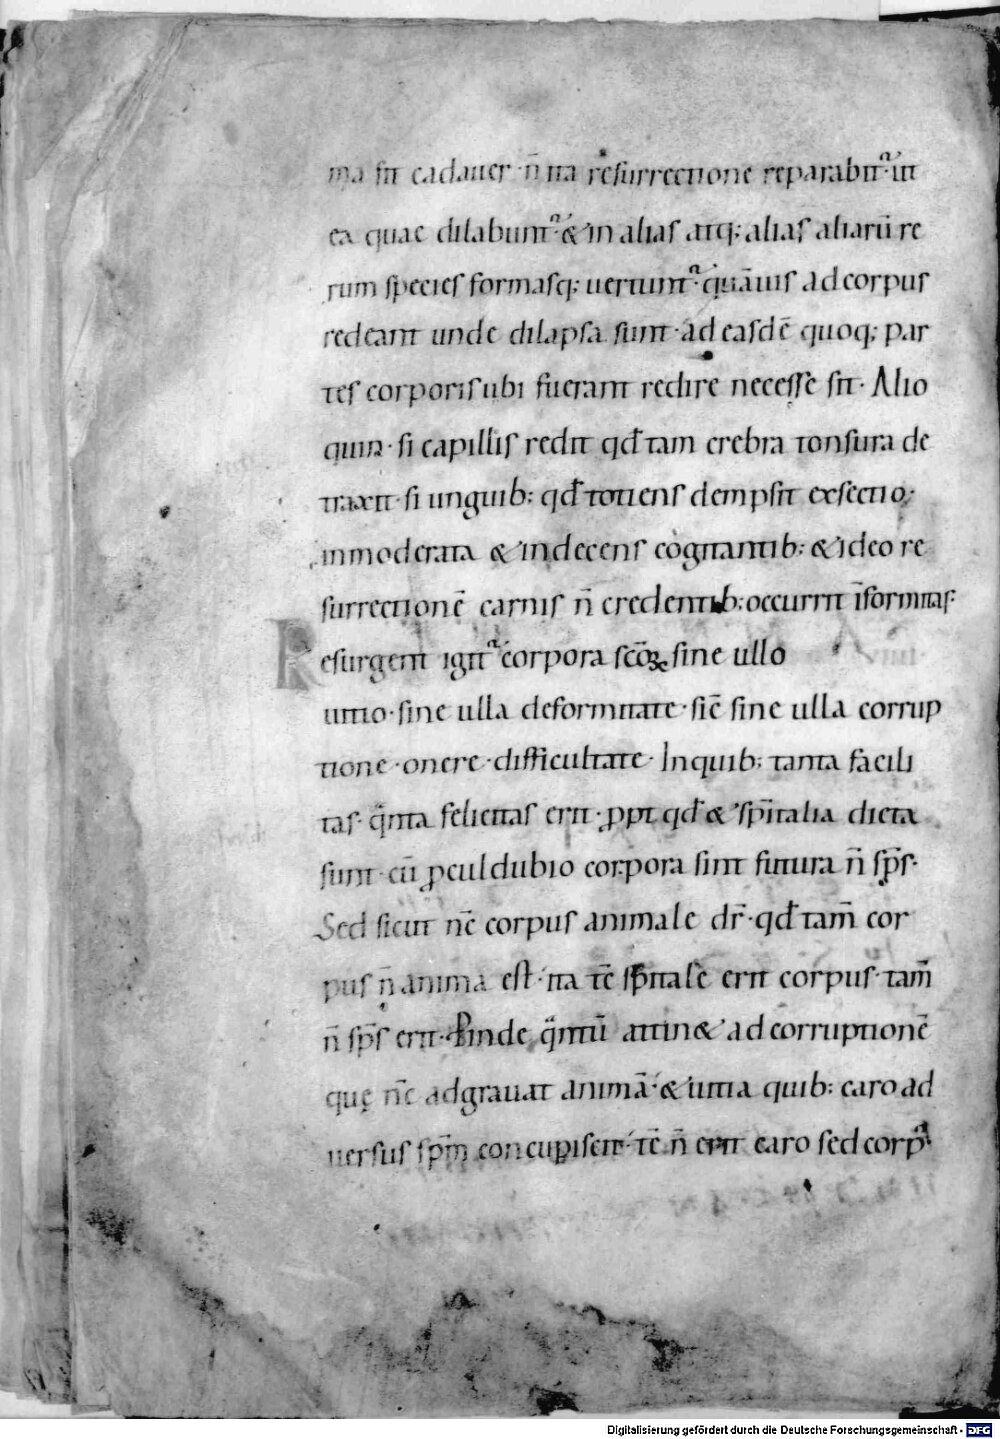 ma fit cadauer · n̄ ita resurrectione reparabit᷑ · ut
ea quae dilabunt᷑ · & in alias atq; alias aliarū re
rum species formasq; uertunt᷑ · quāuis ad corpus
redeant unde dilapsa sunt · ad easdē quoq; par
tes corporis ubi fuerant redire necesse sit · Alio
quin · si capillis redit qđ tam crebra tonsura de
traxit · si unguib; qđ totiens dempsit exsectio;
inmoderata & indecens cogitantib; & ideo re
surrectionē carnis n̄ credentib; occurrit īformitas·
Resurgent igit᷑ corpora scōꝝ sine ullo
uitio · sine ulla deformitate · sic̄ sine ulla corrup
tione · onere · difficultate · In quib; tanta facili
tas · q̄nta felicitas erit · ꝓpt qđ & sp̄italia dicta
sunt · cū ꝓcul dubio corpora sint futura n̄ sp̄s ·
Sed sicut nc̄ corpus animale dr̄ · qđ tam̄ cor
pus n̄ anima est · ita tc̄ sp̄itale erit corpus · tam̄
n̄ sp̄s erit · Proinde q̄ntū attin& ad corruptionē
quę nc̄ adgrauat animā · & uitia quib; caro ad
uersus sp̄m concupiscit · tc̄ n̄ erit caro sed corp᷑
Digitalisierung gefördert durch die Deutsche Forschungsgemeinschaft - DFG